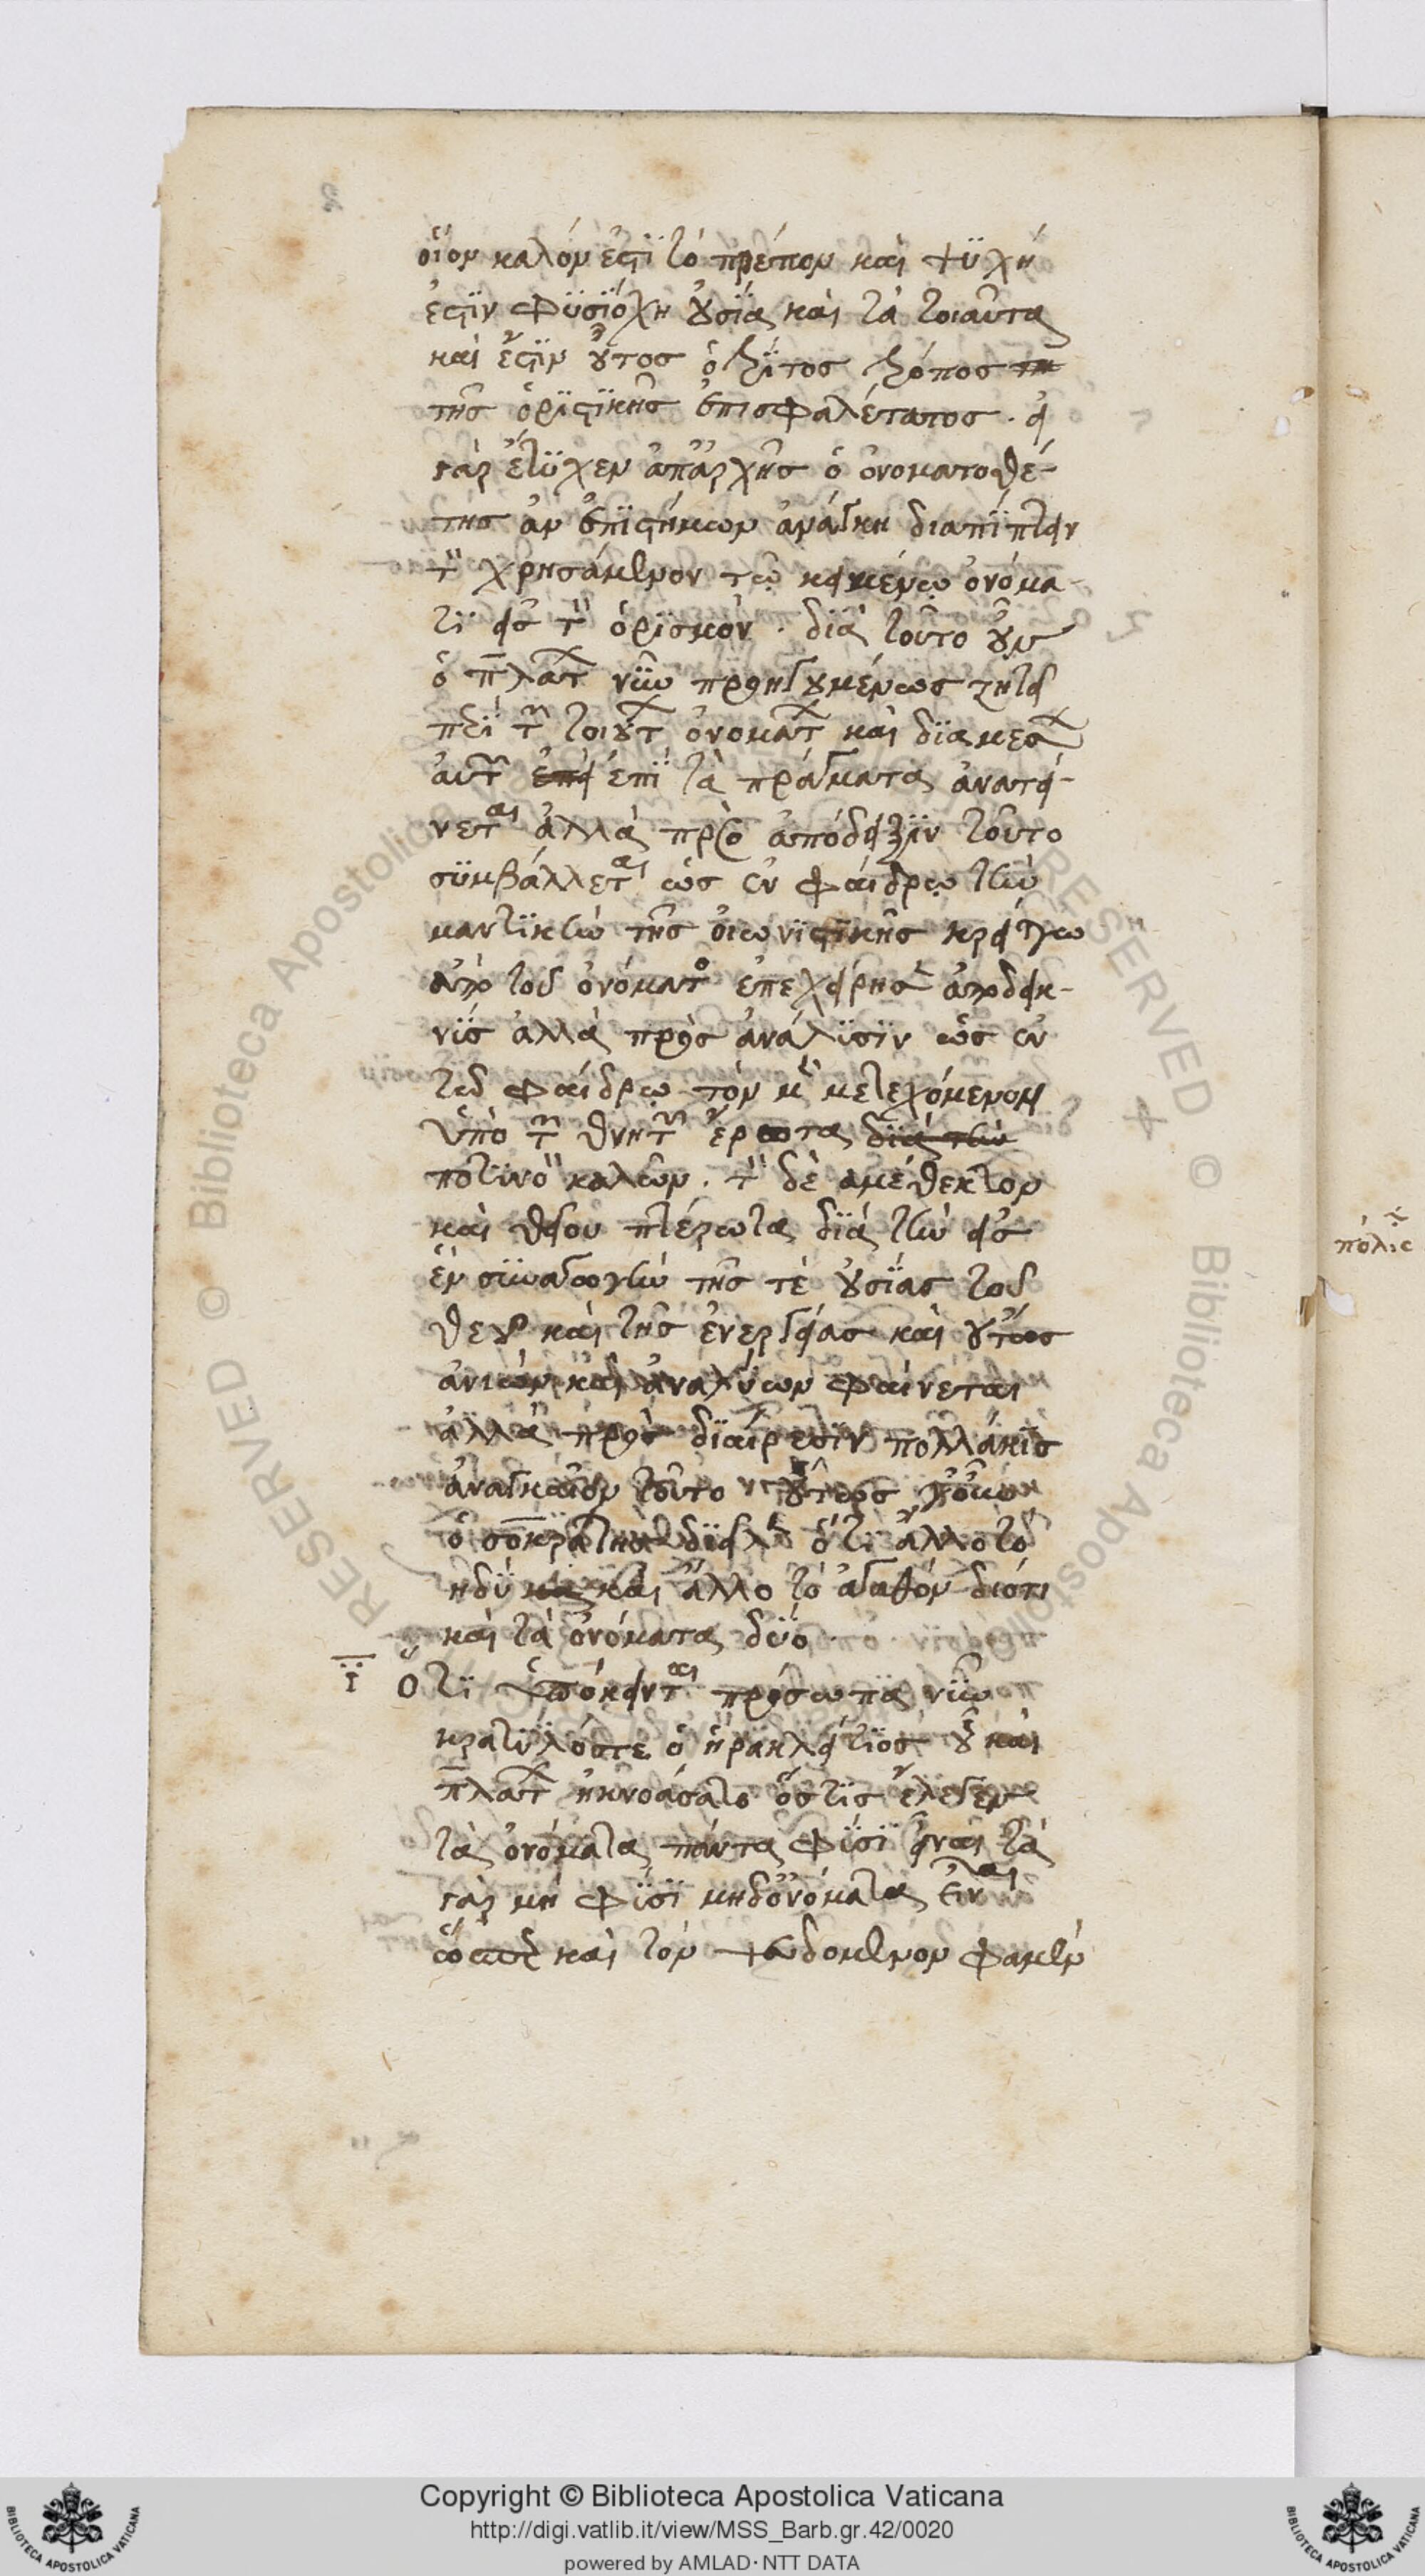 οἷον καλόν ἐστϊ τό πρέπον καὶ ψϋχή
ἐστϊν φϋσϊόχη οὐσϊα καὶ τὰ τοιαῦτα
καὶ ἔστϊν οὗτος ὁ τρϊτος τρόπος τη
τῆς ὁρϊστϊκῆς ἐπισφαλέστατος . εἰ
γὰρ ἔτϋχεν ἀπ' ἀρχῆς ὁ ὀνοματοθέ-
της ἀν ἐπϊστήμων ἀνάγκη διαπίπτειν
τὸν χρησάμενον τῷ κειμένῳ ὀνόμα-
τϊ εἰς τὸν ὁρϊσμόν . δϊὰ τοῦτο οὖν
ὁ πλάτ νῦν προηγουμένως ζητεῖ
περϊ τῶν τοιούτ ὀνομάτ καὶ δϊα μέσ
αὐτῶν ἐπει ἐπὶ τὰ πράγματα ἀνατεί-
νεται ἀλλὰ πρὸ ἀπόδειξϊν τοῦτο
σϋμβάλλεται ὡς ἐν φαίδρῳ τὴν
μαντϊκὴν τῆς οἰωνϊστϊκῆς κρείττω
ἀπὸ τοῦ ὀνόματο ἐπεχείρησε ἀποδεικ-
νῒς ἀλλὰ πρὸς ἀνάλϋσϊν ὡς ἐν
τῷ φαίδρῳ τὸν μὲν μετεχόμενον
ὑπὸ τῶν θνητῶν ἔρωτα δϊὰ τὴν
ποτῒνὸν καλῶν . τὸν δὲ ἀμέθεκτον
καὶ θεῖον πτέρωτα δϊὰ τὴν εἰς
ἓν σϋναγωγὴν τῆς τὲ οὐσϊας τοῦ
θεοῦ καὶ τῆς ἐνεργείας καὶ οὕτως
ἀνιὼν καὶ ἀναλύων φαίνεται
ἀλλὰ πρὸς δϊαίρεσϊν πολλάκϊς
ἀναγκαῖον τοῦτο οὕτως
ὁ σοκράτης δϊεῖλεν ὅτϊ ἄλλο τὸ
ἡδὺ και καὶ ἄλλο τὸ ἀγαθόν διότι
καὶ τὰ ὀνόματα δϋό
ϊ Ὅτϊ ὑπόκεινται πρόσωπα νῦν
κρατϋλόστε ὁ ἡρακλείτϊος οὗ καὶ
πλάτ ἠκροάσατο ὅστϊς ἔλεγεν
τὰ ὀνόματα πάντα φῒσϊ εἶναι τὰ
γὰρ μὴ φῒσϊ μηδ' ὀνόματα εἶναι
ὥσπερ καὶ τὸν ψευδόμενον φαμεν
πόλις
Copyright © Biblioteca Apostolica Vaticana
http://digi.vatlib.it/view/MSS_Barb.gr.42/0020
powered by AMLAD·NTT DATA